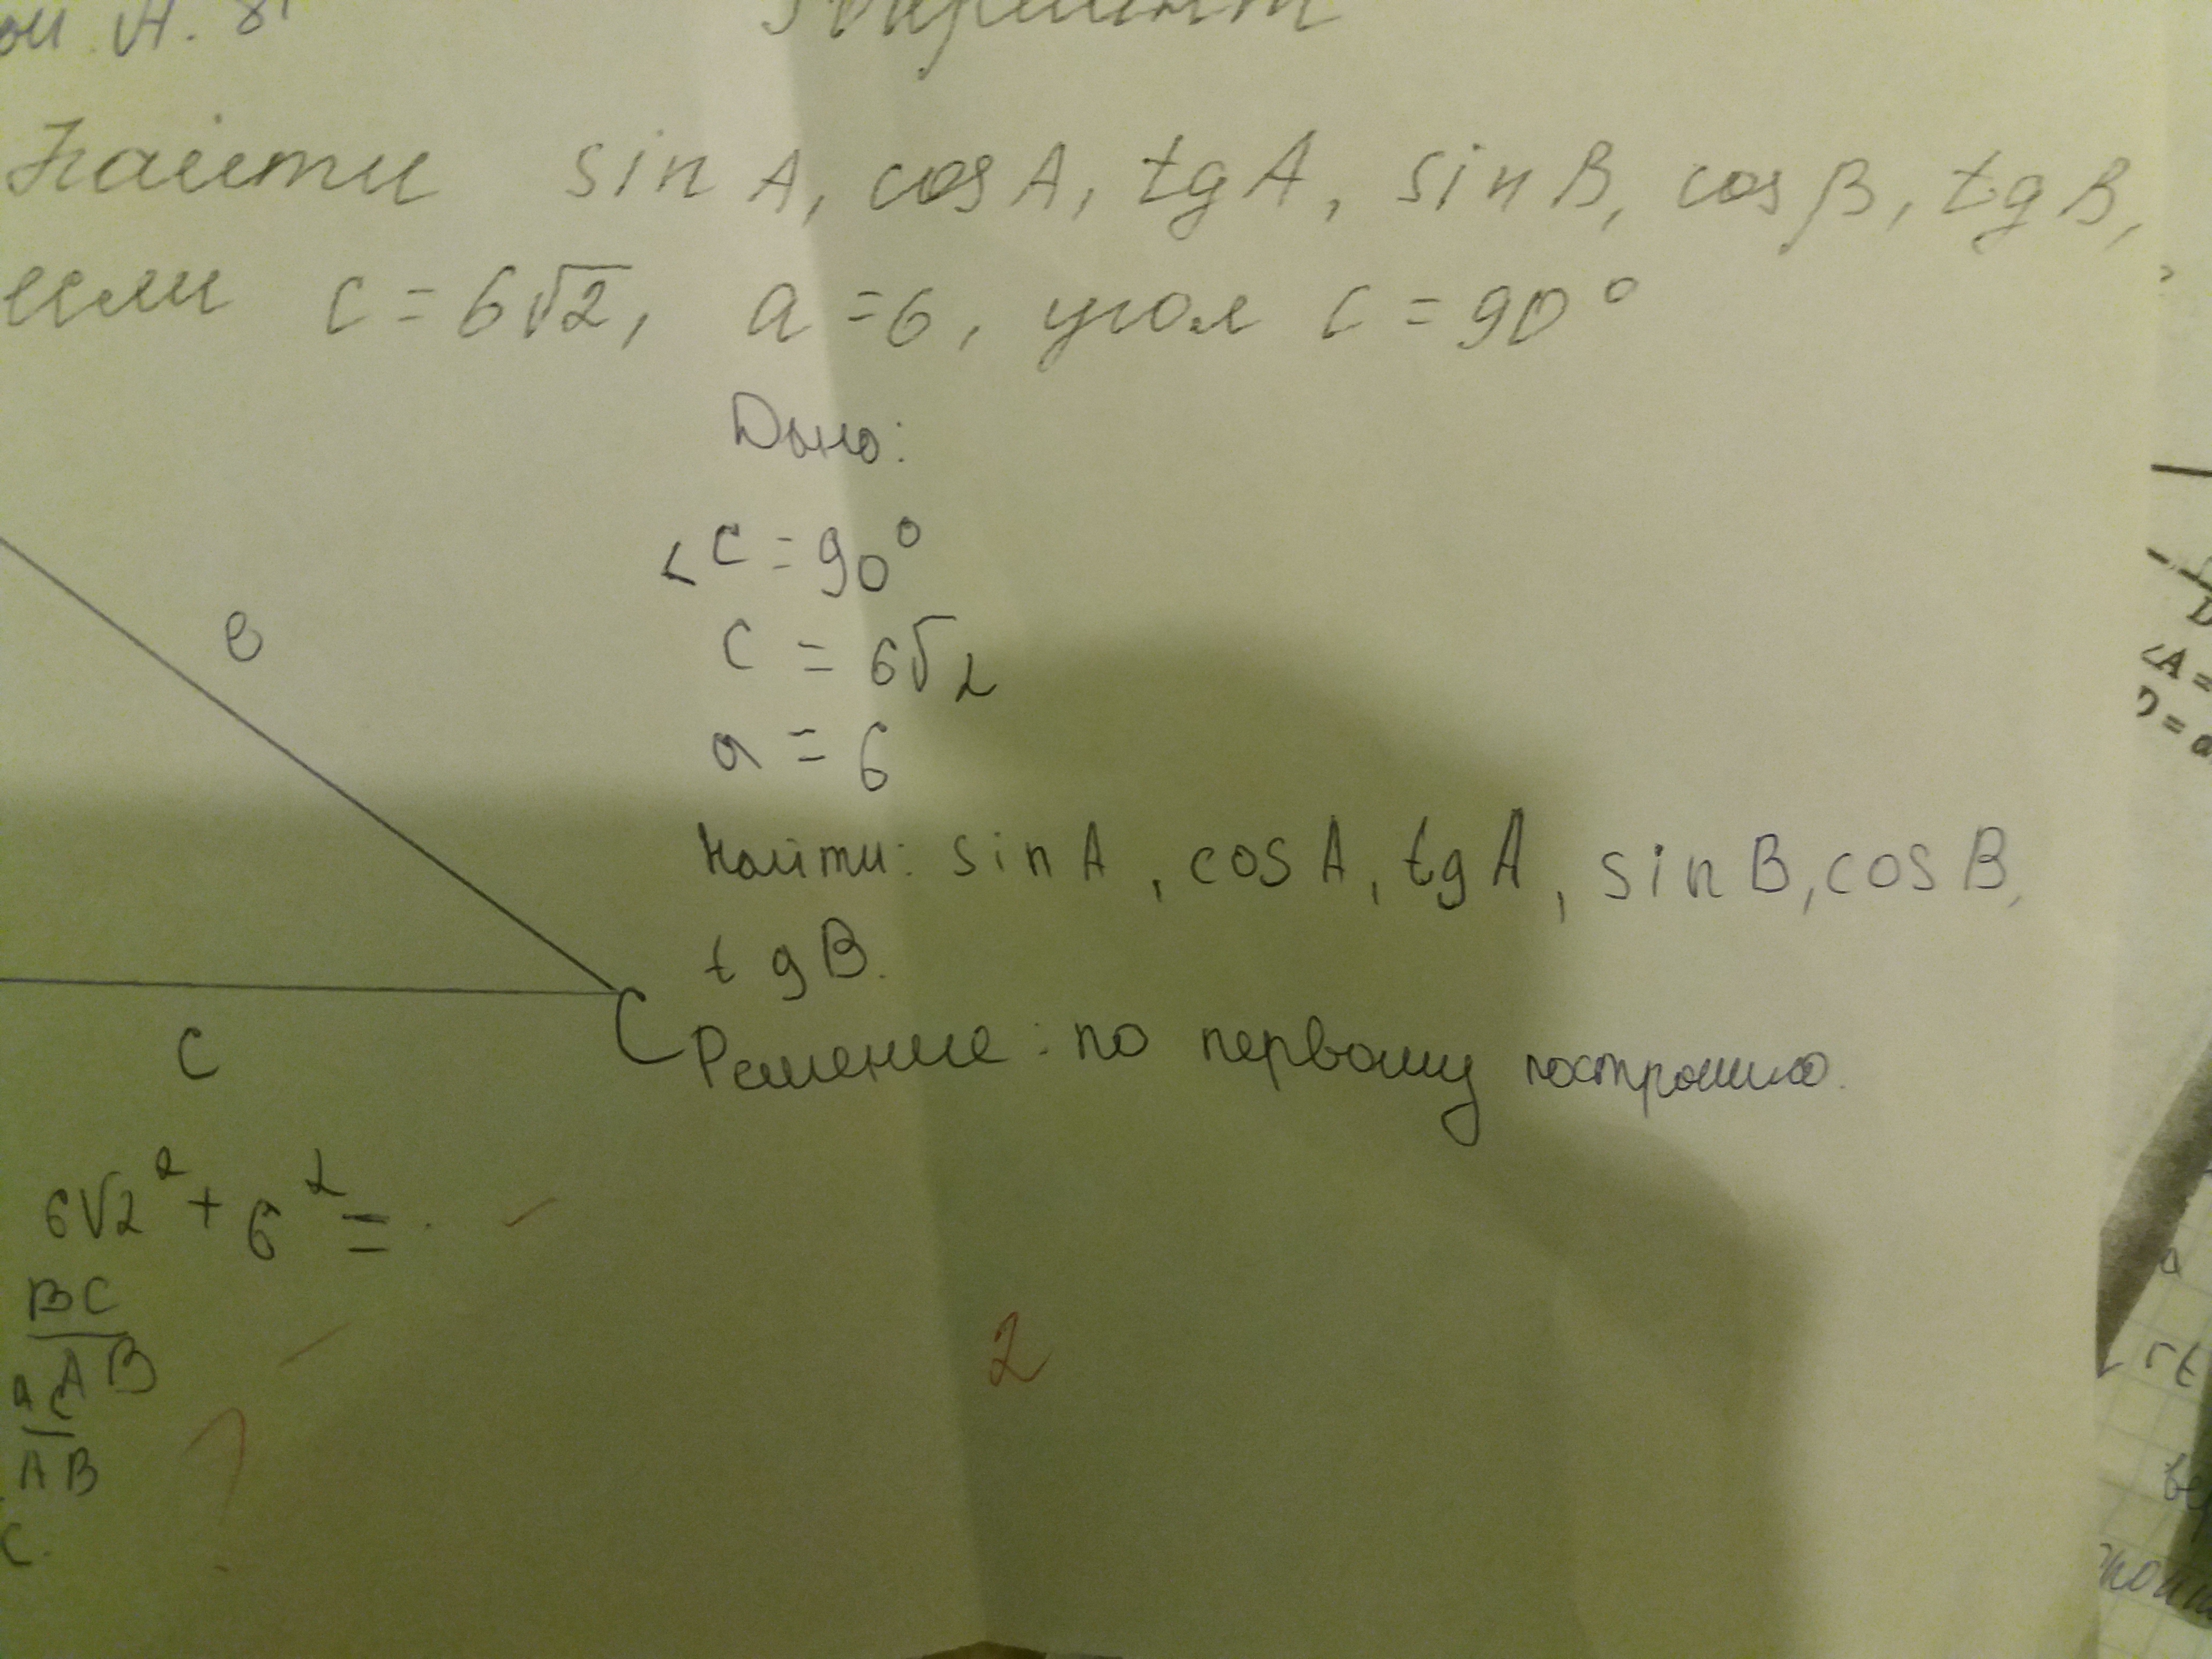 ой А. 8
вариант
Найти sin A, cos A, tg A, sin B, cos β, tg B,
если c = 6√2, a = 6, угол C = 90°
Дано:
<C = 90°
c = 6√2
a = 6
Найти: sin A, cos A, tg A, sin B, cos B,
tg B.
в
C
c
Решение: по первому
6√2² + 6² =
BC
AB
AC
AB
C.
?
2
D
∠A =
D = a